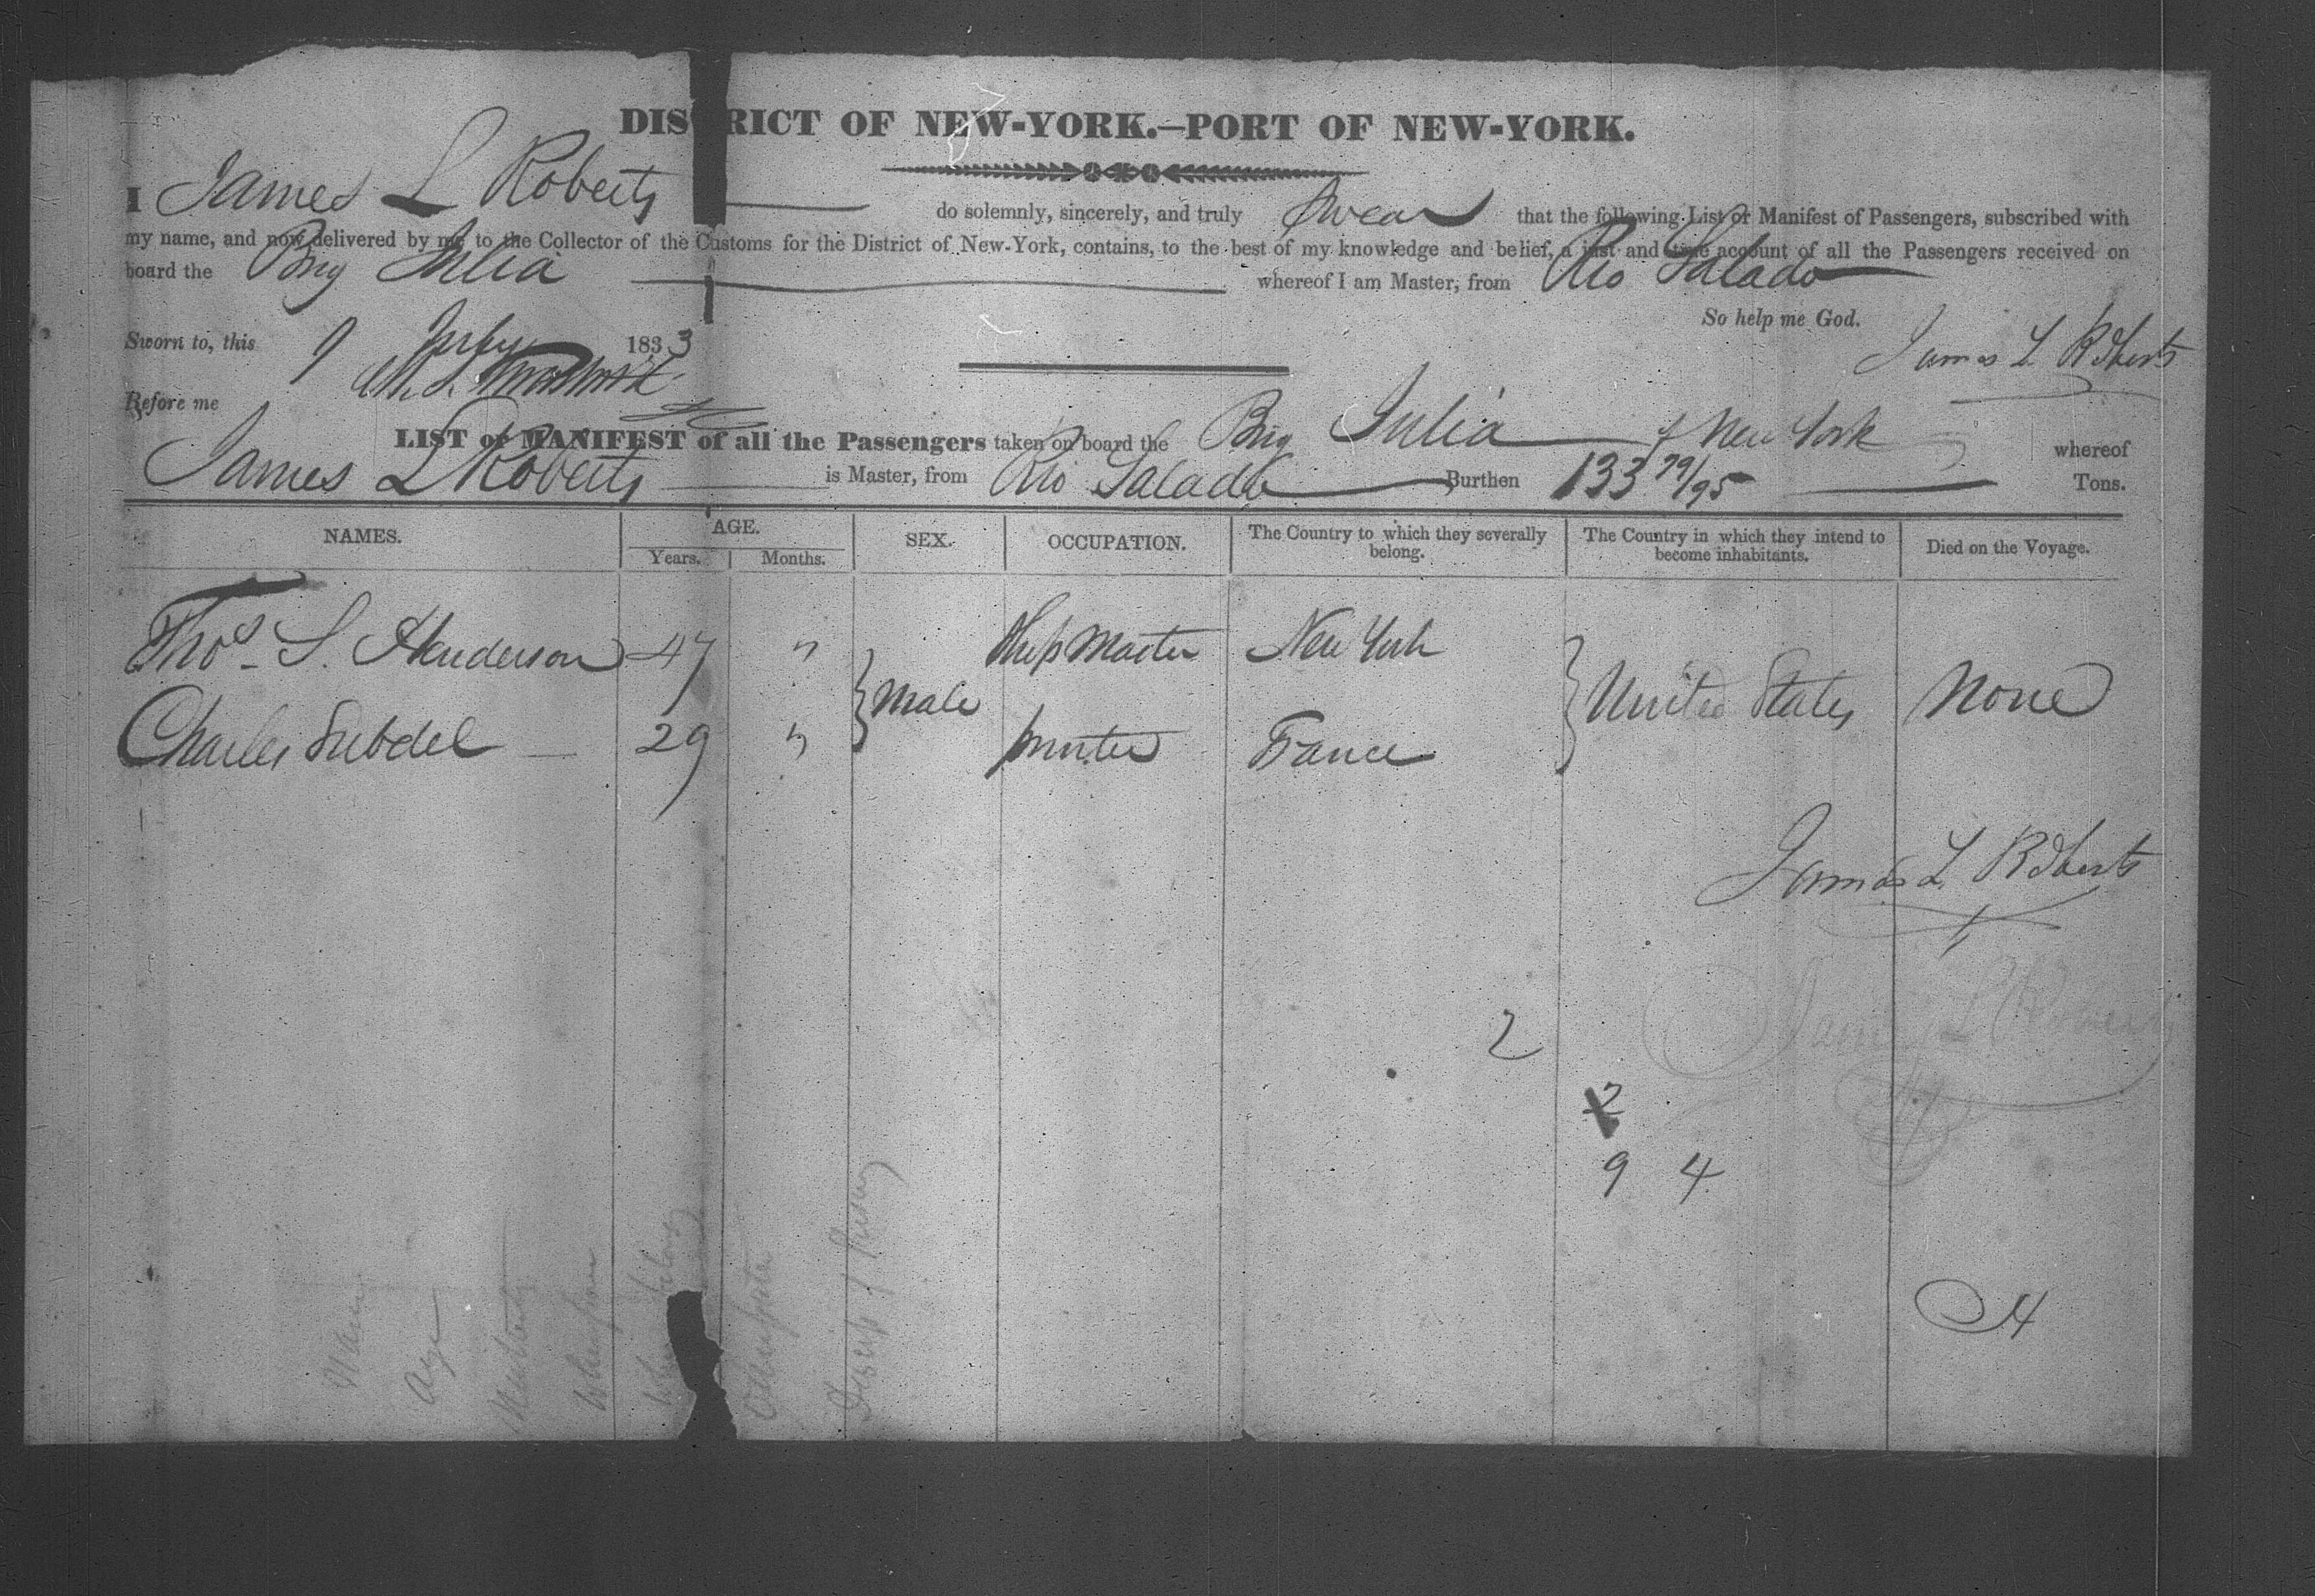 DISTRICT OF NEW-YORK.—PORT OF NEW-YORK.
I James L Roberts do solemnly, sincerely, and truly swear that the following List or Manifest of Passengers, subscribed with
my name, and now delivered by me to the Collector of the Customs for the District of New-York, contains, to the best of my knowledge and belief, a just and true account of all the Passengers received on
board the Brig Julia whereof I am Master, from Rio Salado
So help me God.
Sworn to, this 9 July 1833 James L Roberts
Before me
LIST or MANIFEST of all the Passengers taken on board the Brig Julia of New York whereof
James L Roberts is Master, from Rio Salado Burthen 133 79/95 Tons.
NAMES. AGE. Years. Months. SEX. OCCUPATION. The Country to which they severally belong. The Country in which they intend to become inhabitants. Died on the Voyage.
Thos. S. Henderson 47 " Male Ship Master New York United States None
Charles Subdel 29 " printer France
James L Roberts
2
James L Roberts
2
9 4
4
Name
Age
Occupation